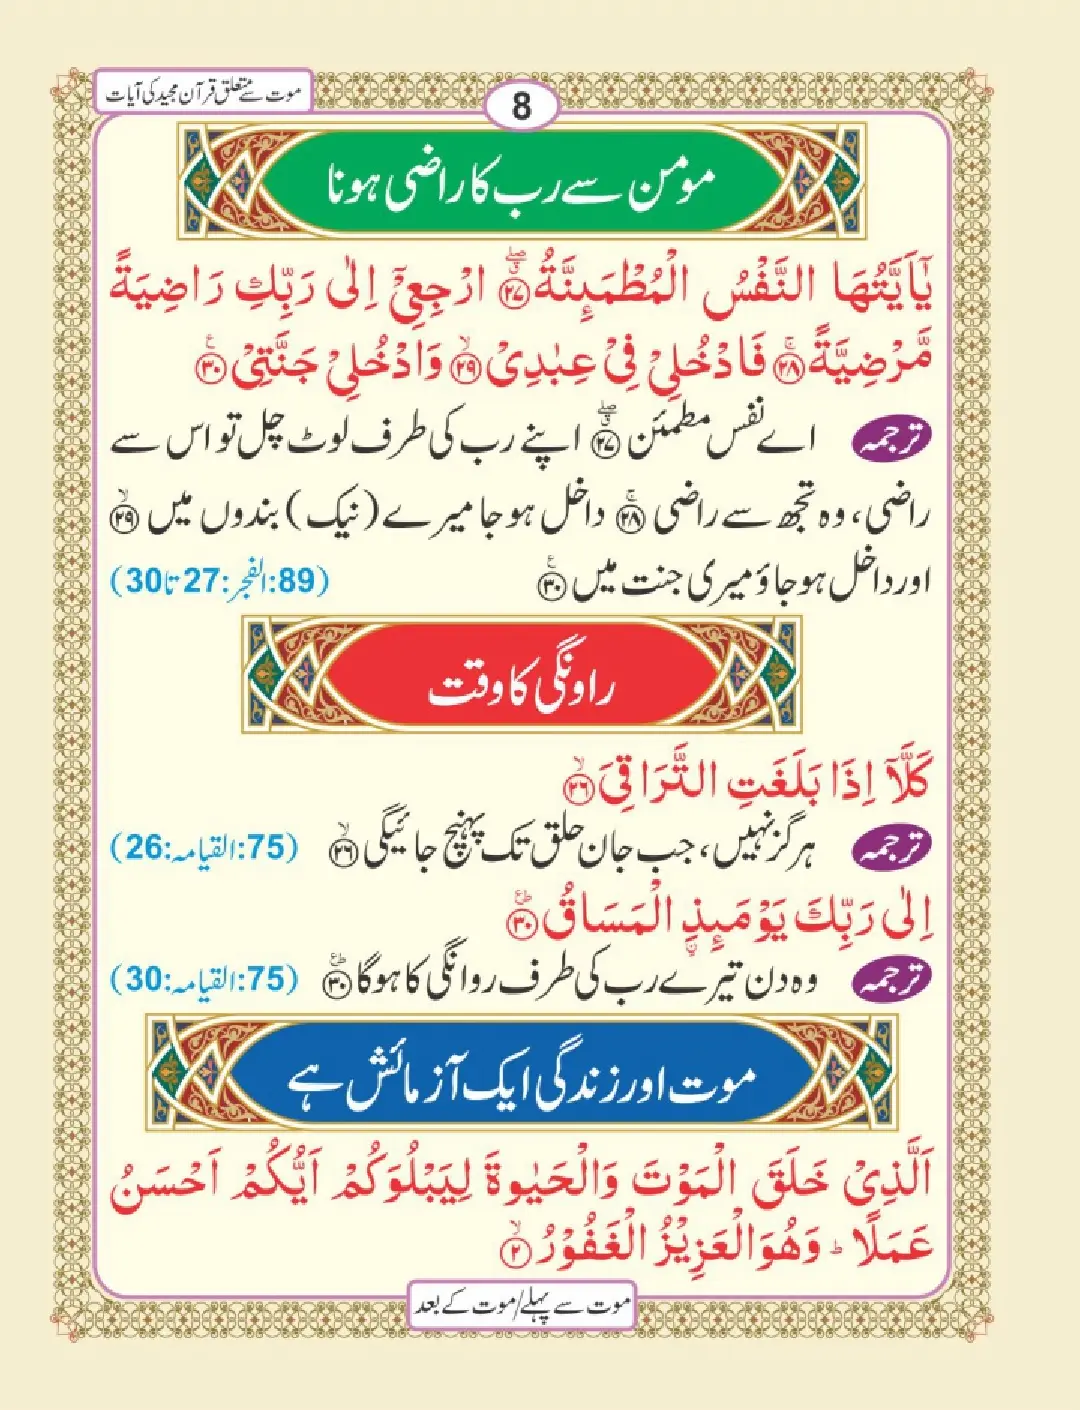 موت سے متعلق قرآن مجید کی آیات
8
مومن سے رب کا راضی ہونا
يٰۤاَيَّتُهَا النَّفْسُ الْمُطْمَىِٕنَّةُ ۝۲۷ ارْجِعِیْۤ اِلٰی رَبِّكِ رَاضِيَةً
مَّرْضِيَّةً ۝۲۸ فَادْخُلِیْ فِیْ عِبٰدِیْ ۝۲۹ وَادْخُلِیْ جَنَّتِیْ ۝۳۰
ترجمہ اے نفس مطمئن ۝۲۷ اپنے رب کی طرف لوٹ چل تو اس سے
راضی، وہ تجھ سے راضی ۝۲۸ داخل ہو جا میرے (نیک) بندوں میں ۝۲۹
اور داخل ہو جاؤ میری جنت میں ۝۳۰ (89:الفجر:27 تا 30)
راونگی کا وقت
كَلَّاۤ اِذَا بَلَغَتِ التَّرَاقِیَ ۝۲۶
ترجمہ ہر گز نہیں، جب جان حلق تک پہنچ جائیگی ۝۲۶ (75:القیامہ:26)
اِلٰی رَبِّكَ يَوْمَىِٕذِ ِۨالْمَسَاقُ ۝۳۰
ترجمہ وہ دن تیرے رب کی طرف روانگی کا ہوگا ۝۳۰ (75:القیامہ:30)
موت اور زندگی ایک آزمائش ہے
اَلَّذِیْ خَلَقَ الْمَوْتَ وَالْحَيٰوةَ لِيَبْلُوَكُمْ اَيُّكُمْ اَحْسَنُ
عَمَلًا ؕ وَهُوَ الْعَزِيْزُ الْغَفُوْرُ ۝۲
موت سے پہلے/موت کے بعد